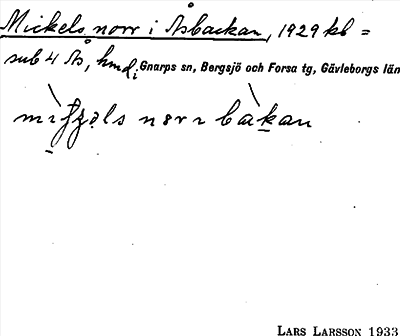 Mickels norr i Åsbackan, 1929 kb =
sub 4 Ås, hmd, i Gnarps sn, Bergsjö och Forsa tg, Gävleborgs län
norr ɩ
LARS LARSSON 1933